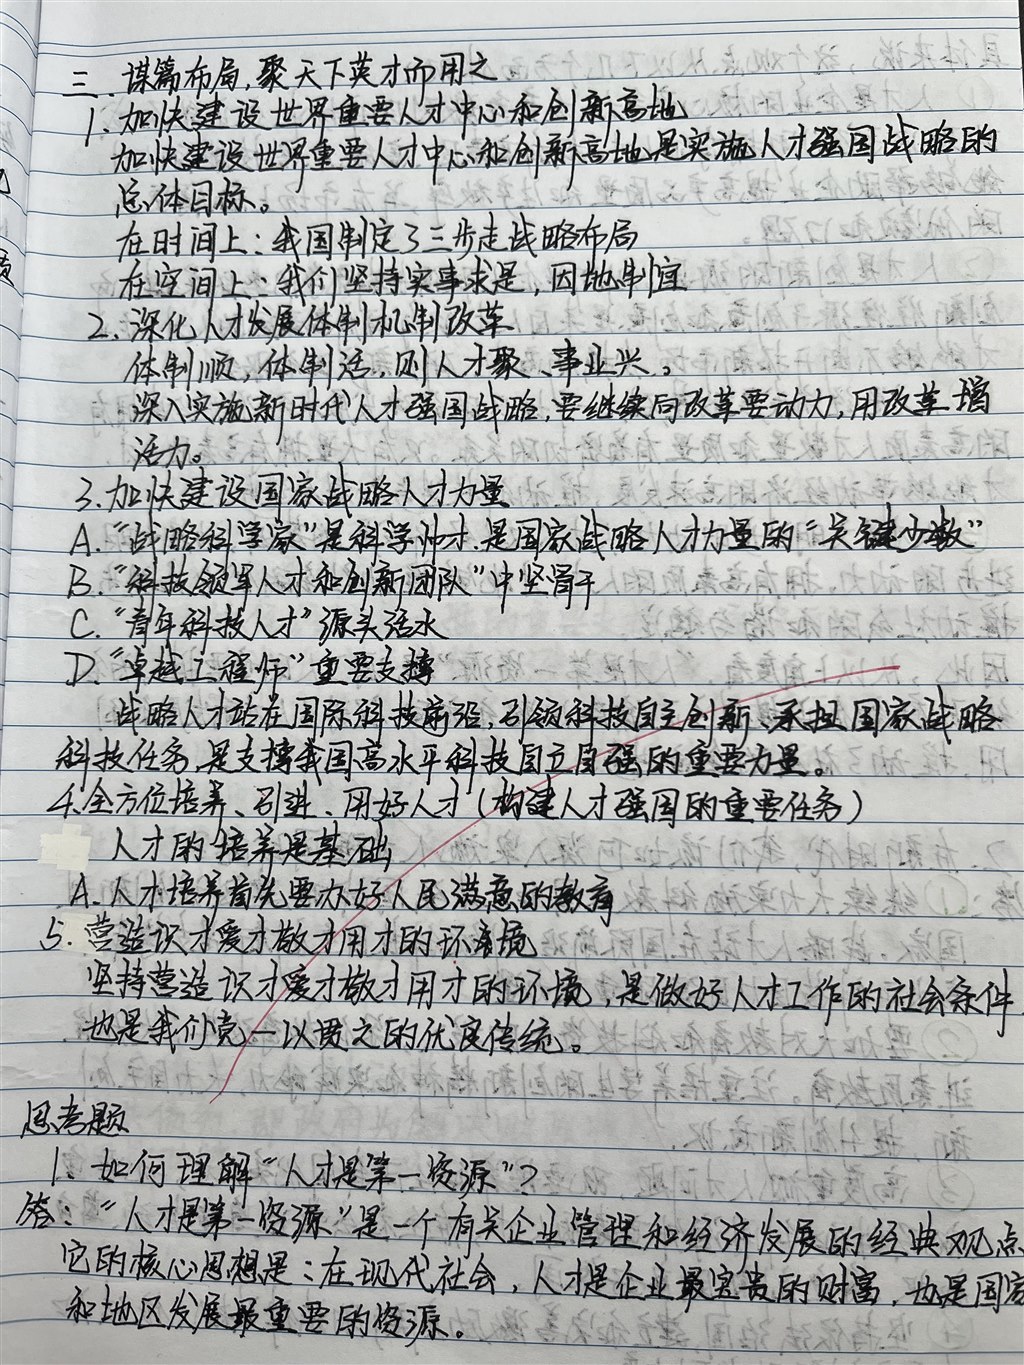 三. 谋篇布局,聚天下英才而用之
1. 加快建设世界重要人才中心和创新高地
加快建设世界重要人才中心和创新高地是实施人才强国战略的
总体目标。
在时间上:我国制定了三步走战略布局
在空间上:我们坚持实事求是,因地制宜
2. 深化人才发展体制机制改革
体制顺,体制活,则人才聚、事业兴。
深入实施新时代人才强国战略,要继续向改革要动力,用改革增
活力。
3. 加快建设国家战略人才力量
A. “战略科学家”是科学帅才.是国家战略人才力量的“关键少数”
B. “科技领军人才和创新团队”中坚骨干
C. “青年科技人才”源头活水
D. “卓越工程师”重要支撑
战略人才站在国际科技前沿,引领科技自主创新、承担国家战略
科技任务,是支撑我国高水平科技自立自强的重要力量。
4. 全方位培养、引进、用好人才(构建人才强国的重要任务)
人才的培养是基础
A. 人才培养首先要办好人民满意的教育
5. 营造识才爱才敬才用才的环境
坚持营造识才爱才敬才用才的环境,是做好人才工作的社会条件
也是我们党一以贯之的优良传统。
思考题
1. 如何理解“人才是第一资源”?
答:“人才是第一资源”是一个有关企业管理和经济发展的经典观点
它的核心思想是:在现代社会,人才是企业最宝贵的财富,也是国家
和地区发展最重要的资源。